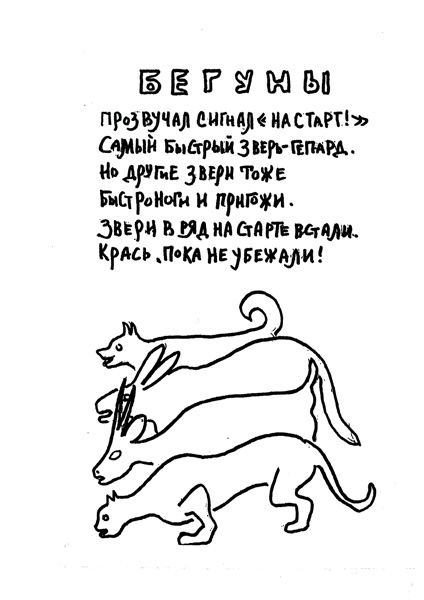 БЕГУНЫ
ПРОЗВУЧАЛ СИГНАЛ «НА СТАРТ!»
САМЫЙ БЫСТРЫЙ ЗВЕРЬ-ГЕПАРД.
НО ДРУГИЕ ЗВЕРИ ТОЖЕ
БЫСТРОНОГИ И ПРИГОЖИ.
ЗВЕРИ В РЯД НА СТАРТЕ ВСТАЛИ.
КРАСЬ, ПОКА НЕ УБЕЖАЛИ!